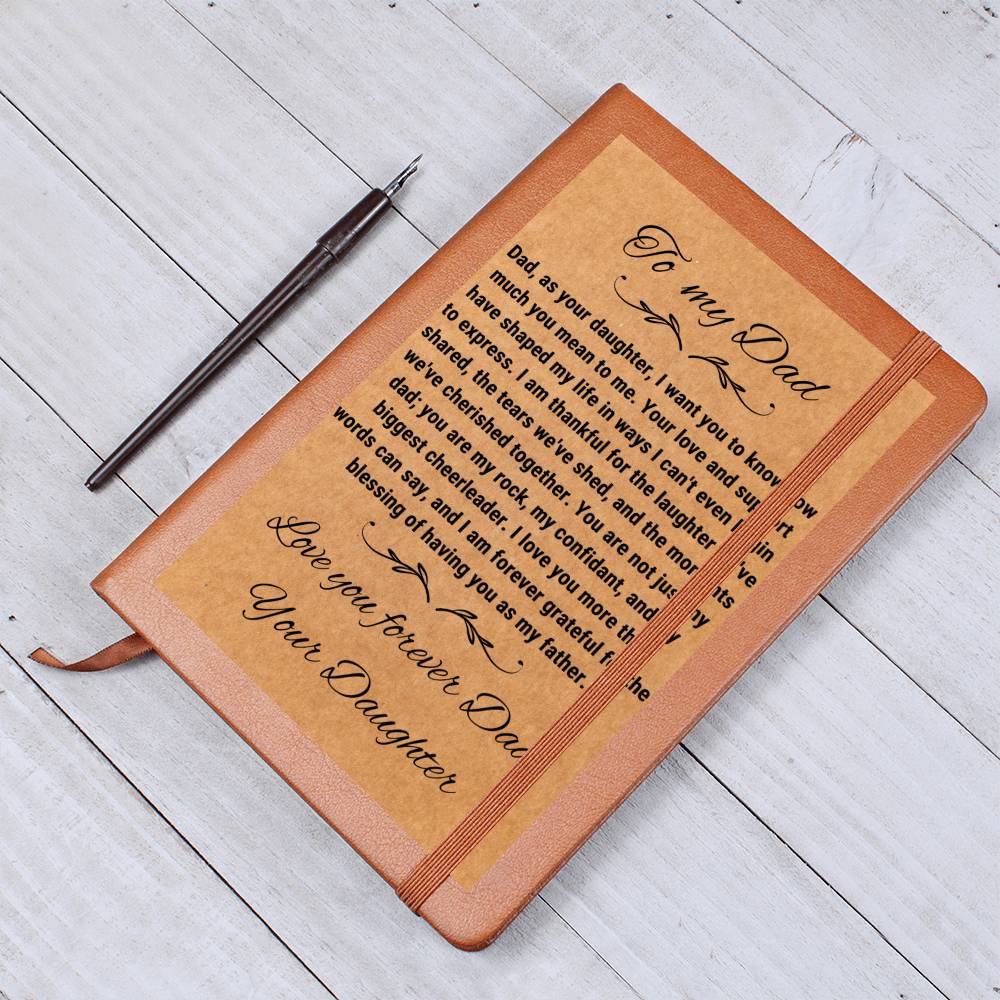 To my Dad
Dad, as your daughter, I want you to know how
much you mean to me. Your love and support
have shaped my life in ways I can't even begin
to express. I am thankful for the laughter we've
shared, the tears we've shed, and the moments
we've cherished together. You are not just my
dad; you are my rock, my confidant, and my
biggest cheerleader. I love you more than
words can say, and I am forever grateful for the
blessing of having you as my father.
Love you forever Dad
Your Daughter